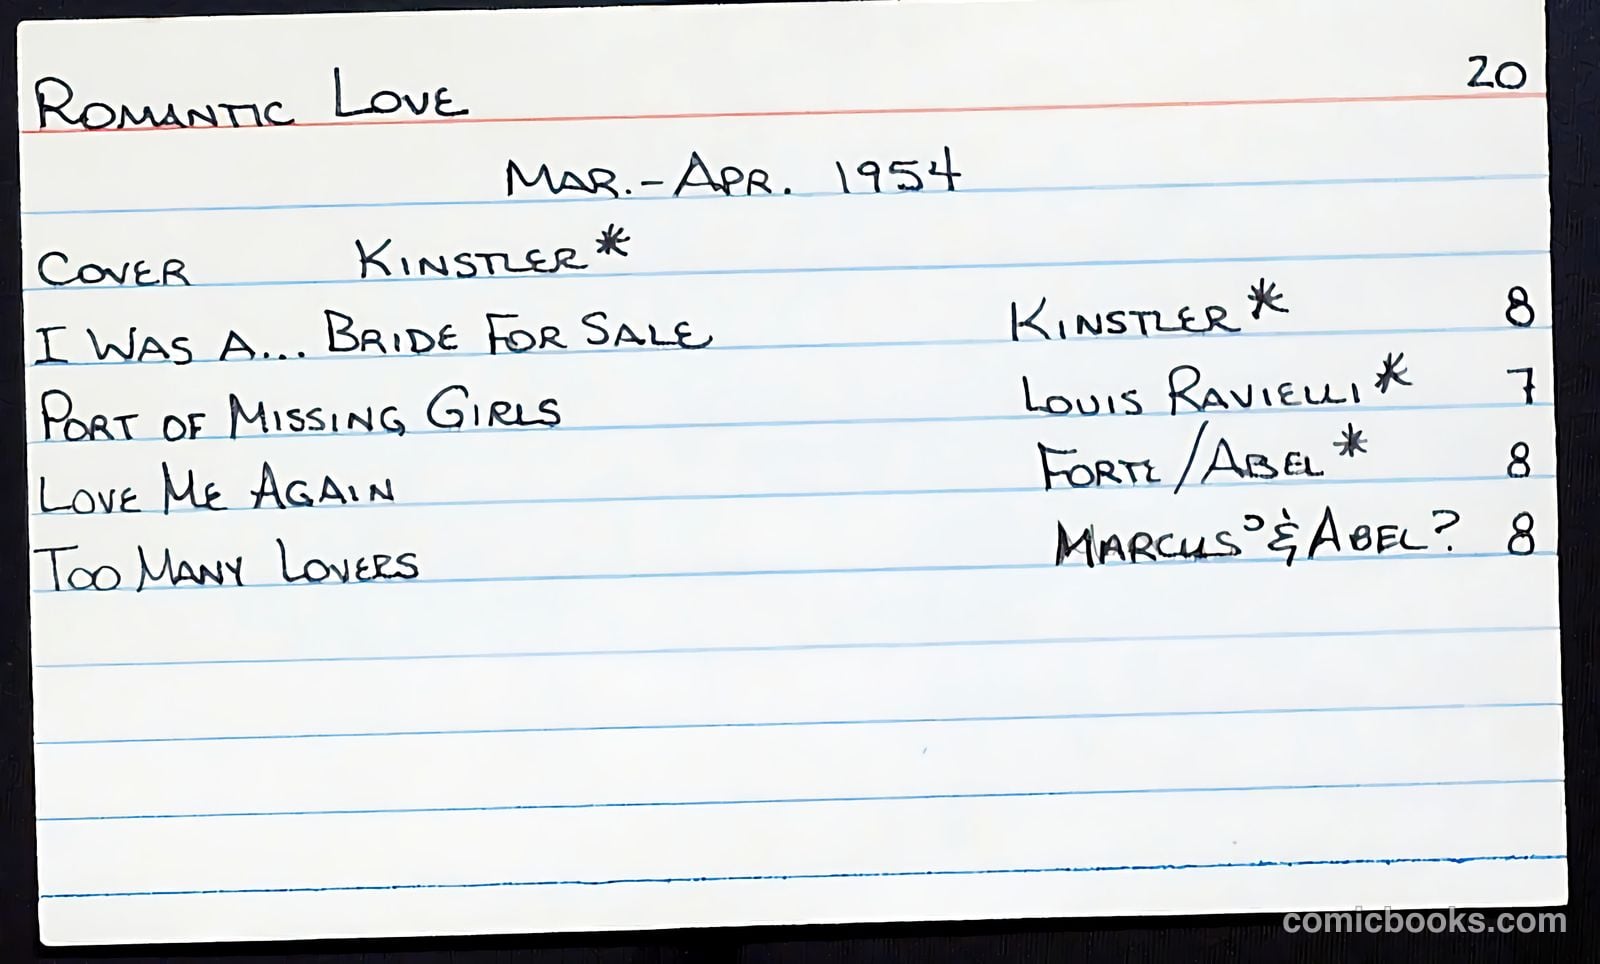 ROMANTIC LOVE 20
MAR.-APR. 1954
COVER KINSTLER*
I WAS A... BRIDE FOR SALE KINSTLER* 8
PORT OF MISSING GIRLS LOUIS RAVIELLI* 7
LOVE ME AGAIN FORTE/ABEL* 8
TOO MANY LOVERS MARCUS? & ABEL? 8
comicbooks.com